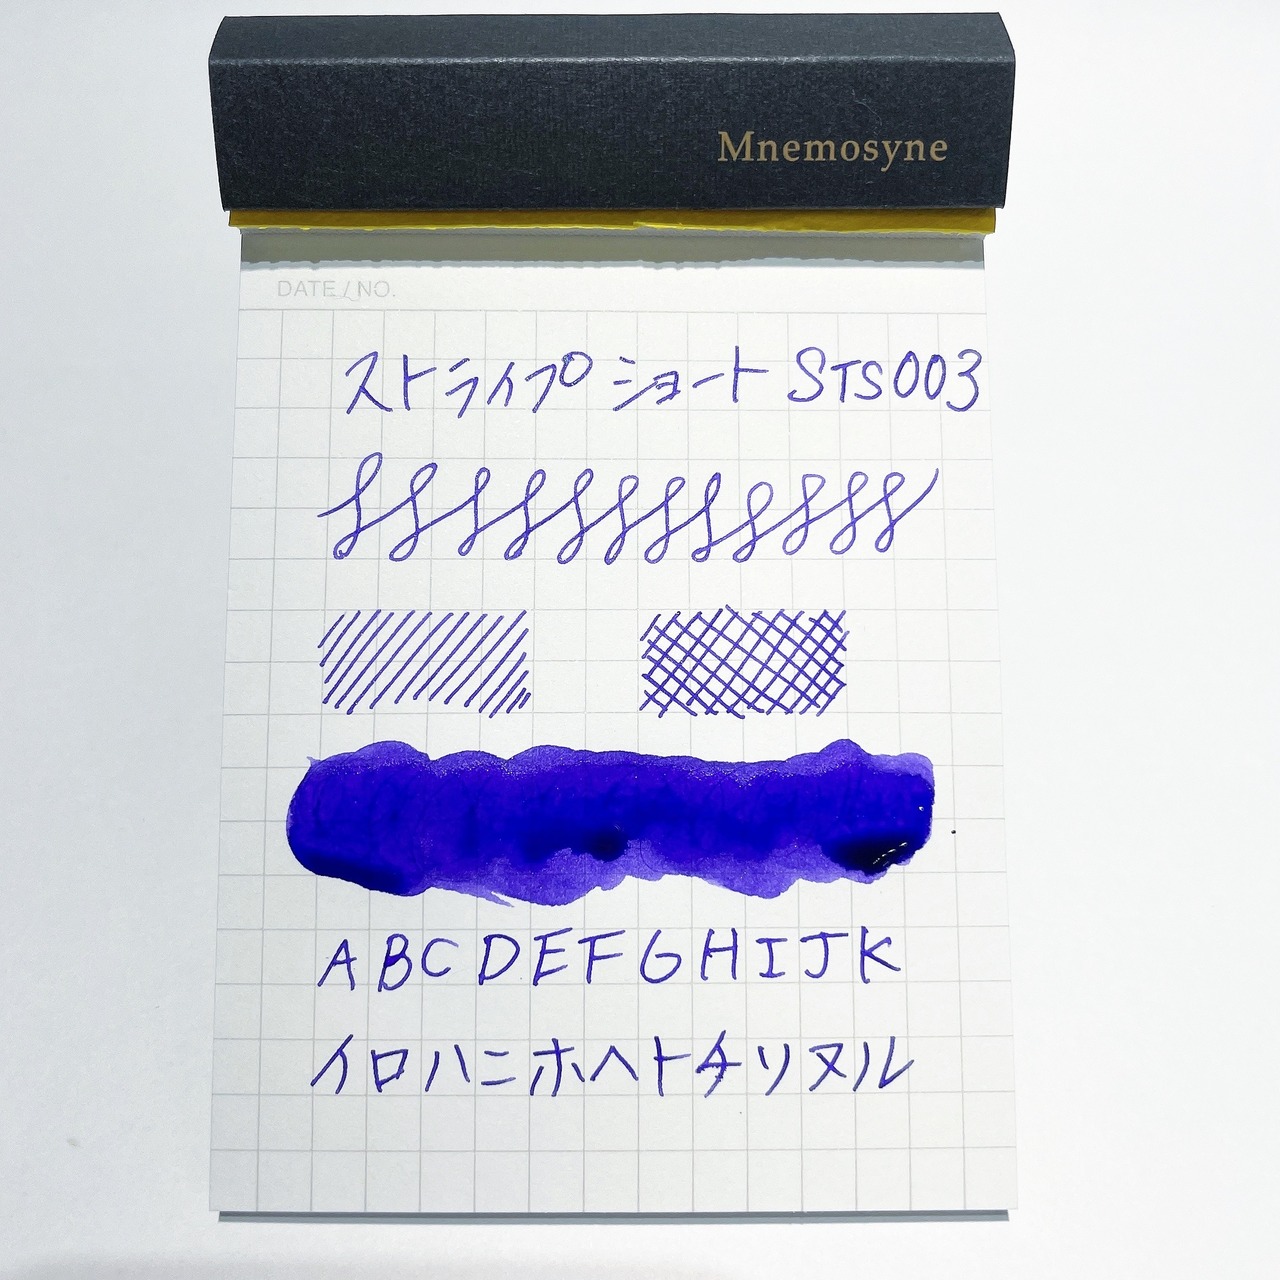 Mnemosyne
DATE / NO.
ストライプショート STS003
ABCDEFGHIJK
イロハニホヘトチリヌル